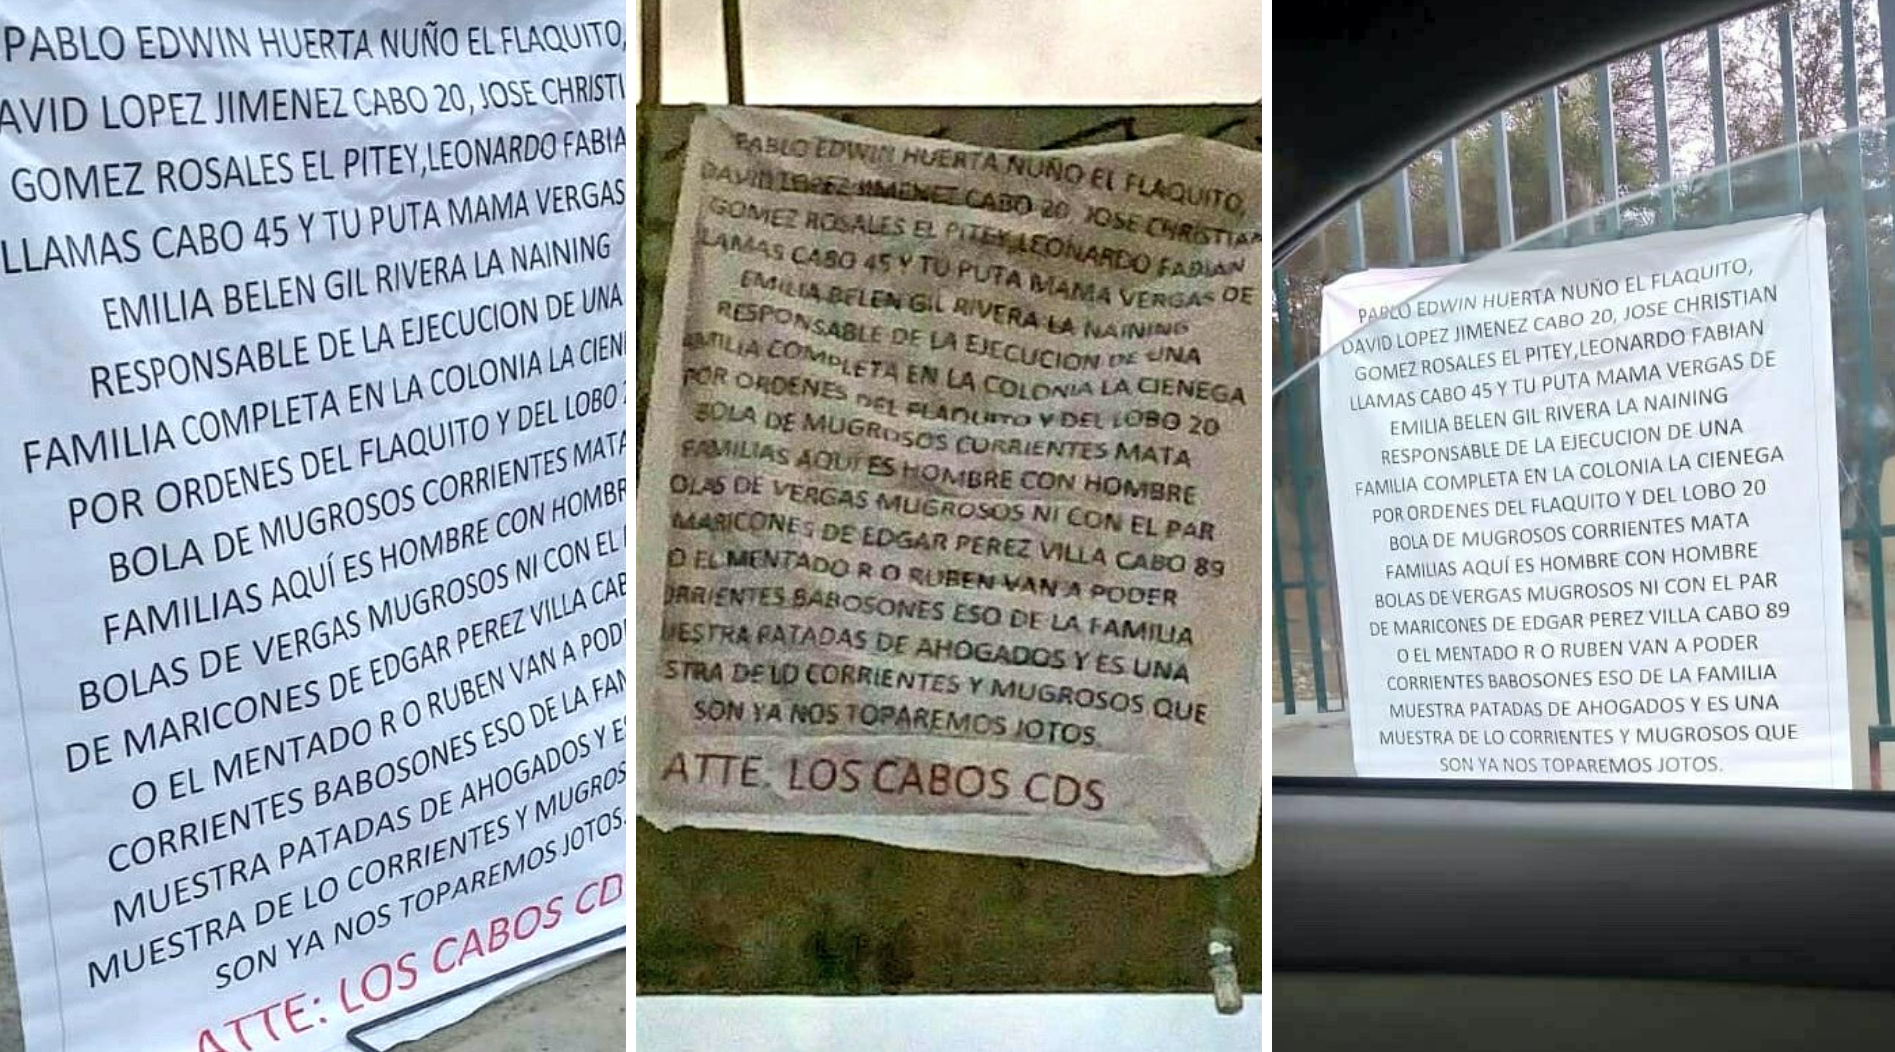 PABLO EDWIN HUERTA NUÑO EL FLAQUITO,
AVID LOPEZ JIMENEZ CABO 20, JOSE CHRISTI
GOMEZ ROSALES EL PITEY,LEONARDO FABIA
LLAMAS CABO 45 Y TU PUTA MAMA VERGAS
EMILIA BELEN GIL RIVERA LA NAINING
RESPONSABLE DE LA EJECUCION DE UNA
FAMILIA COMPLETA EN LA COLONIA LA CIEN
POR ORDENES DEL FLAQUITO Y DEL LOBO 2
BOLA DE MUGROSOS CORRIENTES MATA
FAMILIAS AQUÍ ES HOMBRE CON HOMBR
BOLAS DE VERGAS MUGROSOS NI CON EL
DE MARICONES DE EDGAR PEREZ VILLA CAB
O EL MENTADO R O RUBEN VAN A POD
CORRIENTES BABOSONES ESO DE LA FAM
MUESTRA PATADAS DE AHOGADOS Y ES
MUESTRA DE LO CORRIENTES Y MUGROS
SON YA NOS TOPAREMOS JOTOS.
ATTE: LOS CABOS CD
PABLO EDWIN HUERTA NUÑO EL FLAQUITO,
DAVID LOPEZ JIMENEZ CABO 20, JOSE CHRISTIAN
GOMEZ ROSALES EL PITEY,LEONARDO FABIAN
LLAMAS CABO 45 Y TU PUTA MAMA VERGAS DE
EMILIA BELEN GIL RIVERA LA NAINING
RESPONSABLE DE LA EJECUCION DE UNA
AMILIA COMPLETA EN LA COLONIA LA CIENEGA
POR ORDENES DEL FLAQUITO Y DEL LOBO 20
BOLA DE MUGROSOS CORRIENTES MATA
FAMILIAS AQUÍ ES HOMBRE CON HOMBRE
OLAS DE VERGAS MUGROSOS NI CON EL PAR
MARICONES DE EDGAR PEREZ VILLA CABO 89
O EL MENTADO R O RUBEN VAN A PODER
ORRIENTES BABOSONES ESO DE LA FAMILIA
UESTRA PATADAS DE AHOGADOS Y ES UNA
STRA DE LO CORRIENTES Y MUGROSOS QUE
SON YA NOS TOPAREMOS JOTOS.
ATTE: LOS CABOS CDS
PABLO EDWIN HUERTA NUÑO EL FLAQUITO,
DAVID LOPEZ JIMENEZ CABO 20, JOSE CHRISTIAN
GOMEZ ROSALES EL PITEY,LEONARDO FABIAN
LLAMAS CABO 45 Y TU PUTA MAMA VERGAS DE
EMILIA BELEN GIL RIVERA LA NAINING
RESPONSABLE DE LA EJECUCION DE UNA
FAMILIA COMPLETA EN LA COLONIA LA CIENEGA
POR ORDENES DEL FLAQUITO Y DEL LOBO 20
BOLA DE MUGROSOS CORRIENTES MATA
FAMILIAS AQUÍ ES HOMBRE CON HOMBRE
BOLAS DE VERGAS MUGROSOS NI CON EL PAR
DE MARICONES DE EDGAR PEREZ VILLA CABO 89
O EL MENTADO R O RUBEN VAN A PODER
CORRIENTES BABOSONES ESO DE LA FAMILIA
MUESTRA PATADAS DE AHOGADOS Y ES UNA
MUESTRA DE LO CORRIENTES Y MUGROSOS QUE
SON YA NOS TOPAREMOS JOTOS.